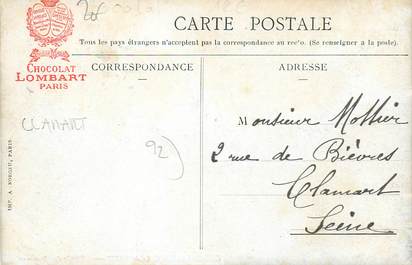 CARTE POSTALE
Tous les pays étrangers n'acceptent pas la correspondance au recto. (Se renseigner à la poste).
CHOCOLAT
LOMBART
PARIS
CORRESPONDANCE
ADRESSE
CLAMART
92)
Monsieur Mottier
2 rue de Bièvres
Clamart
Seine
IMP. A. NORGEU, PARIS